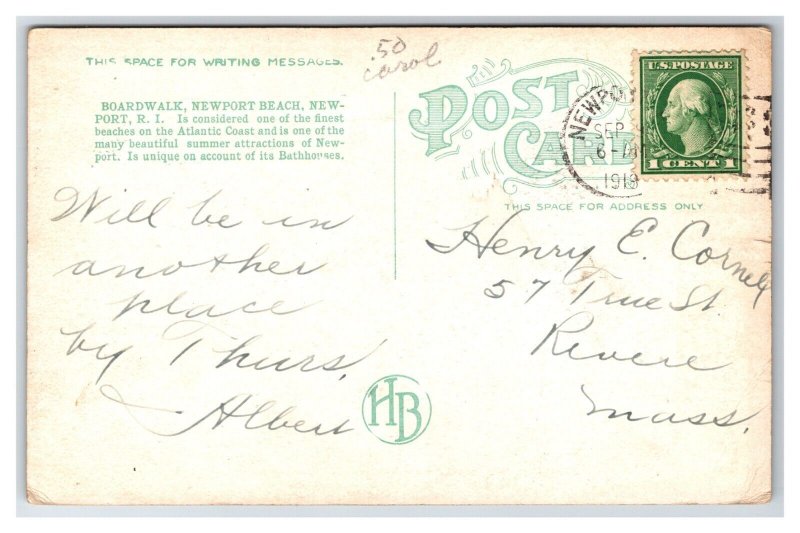 .50
carol
THIS SPACE FOR WRITING MESSAGES.
BOARDWALK, NEWPORT BEACH, NEW-
PORT, R. I. Is considered one of the finest
beaches on the Atlantic Coast and is one of the
many beautiful summer attractions of New-
port. Is unique on account of its Bathhouses.
POST
CARD
U.S. POSTAGE
1 CENT 1
NEWPO
SEP
6-
1918
THIS SPACE FOR ADDRESS ONLY
Will be in
another
place
by Thurs.
Albert
HB
Henry E. Cornely
57 True St
Revere
Mass.